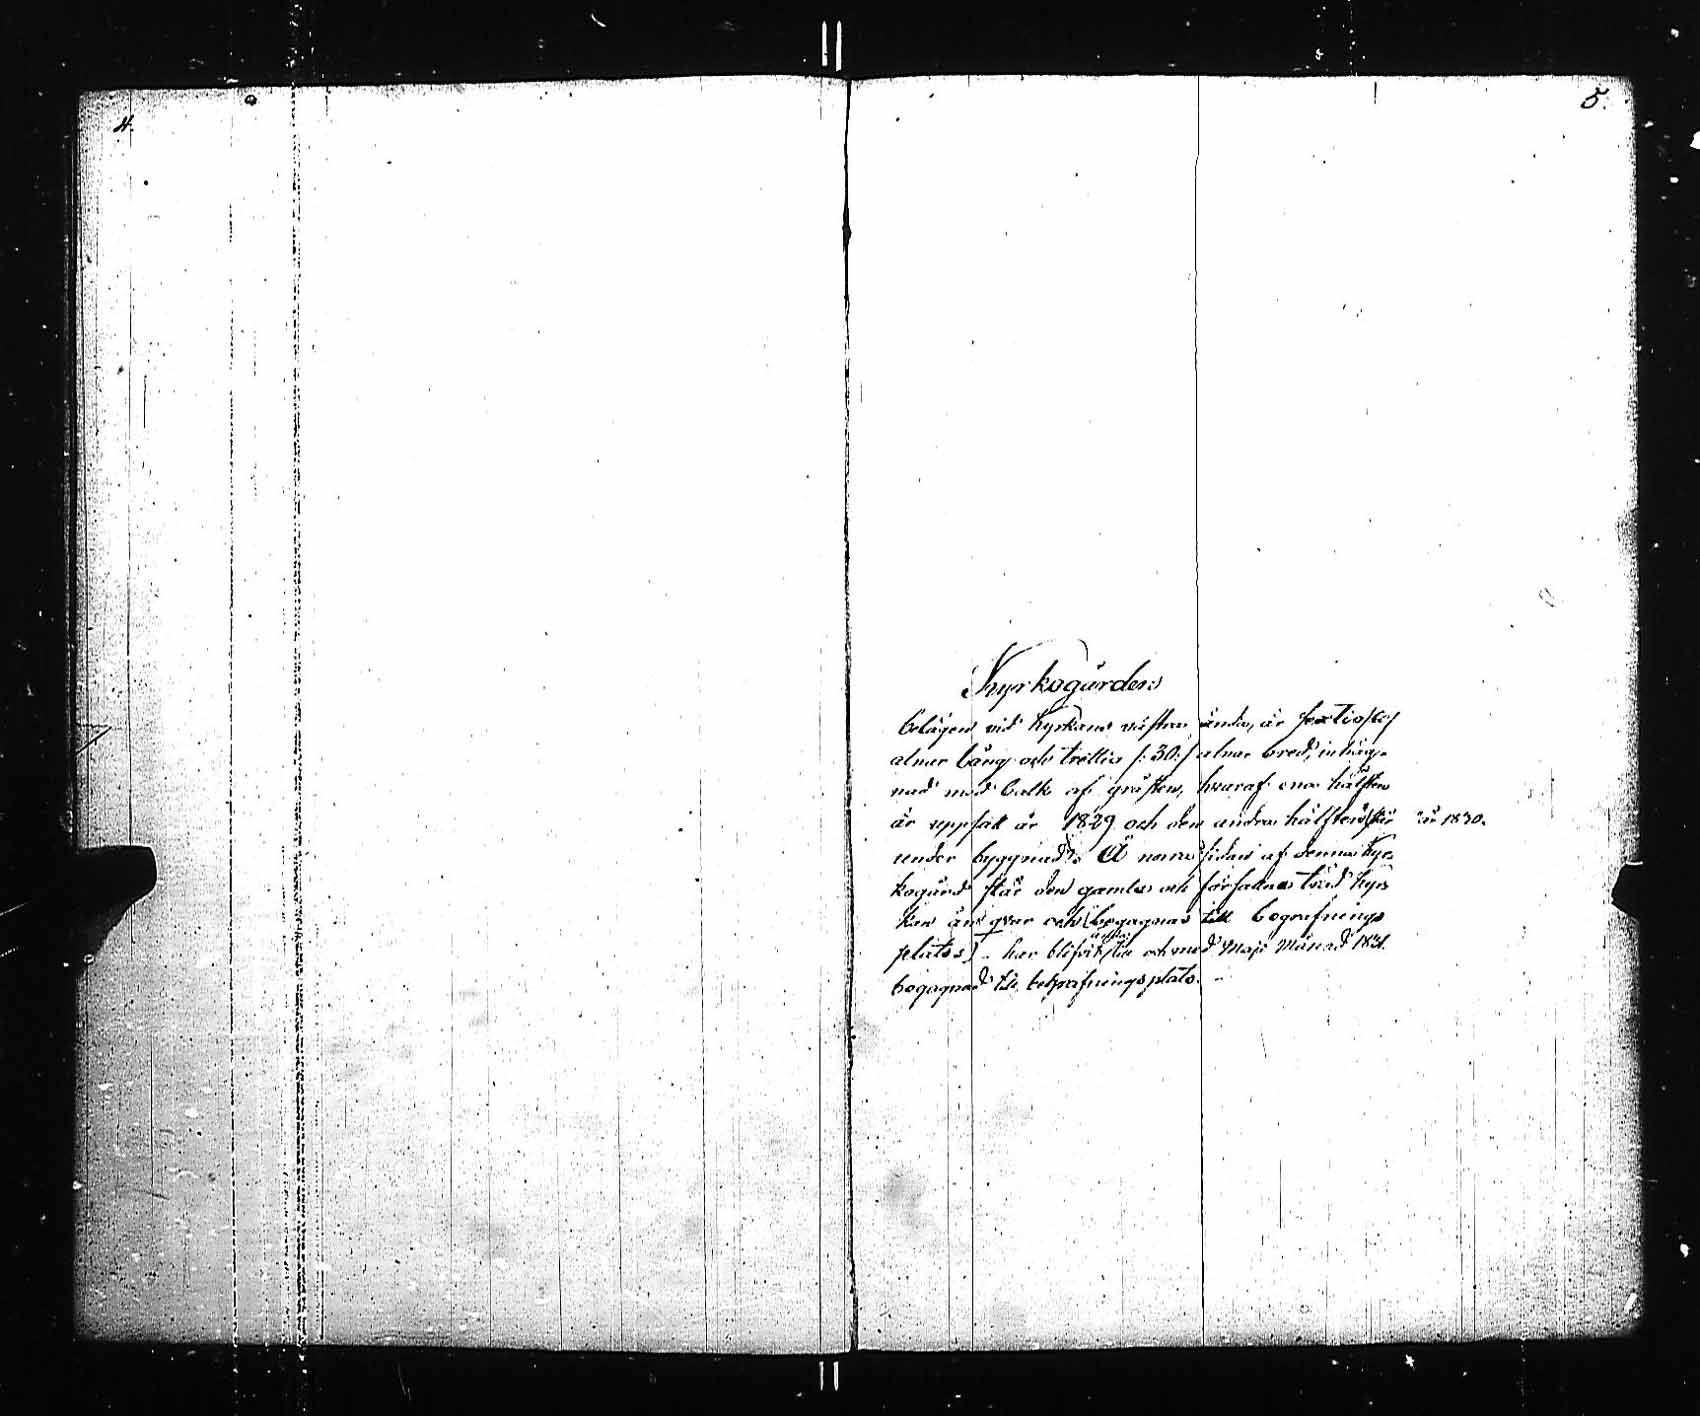 4.
5.
Kyrkogården
belägen vid kyrkans västra ända, är sextio
alnar lång och trettio /: 30 :/ alnar bred, inhäg-
nad med balk af gråsten, hvaraf ena hälften
är uppsatt år 1829 och den andra hälften (är år 1830.
under byggnad). Å norra sidan af denna kyr-
kogård står den gamla och förfallna träd kyr-
kan än qvar och (begagnas till begrafnings
plats) - har blifvit och med Maji Månad 1831.
begagnad till begrafningsplats. -